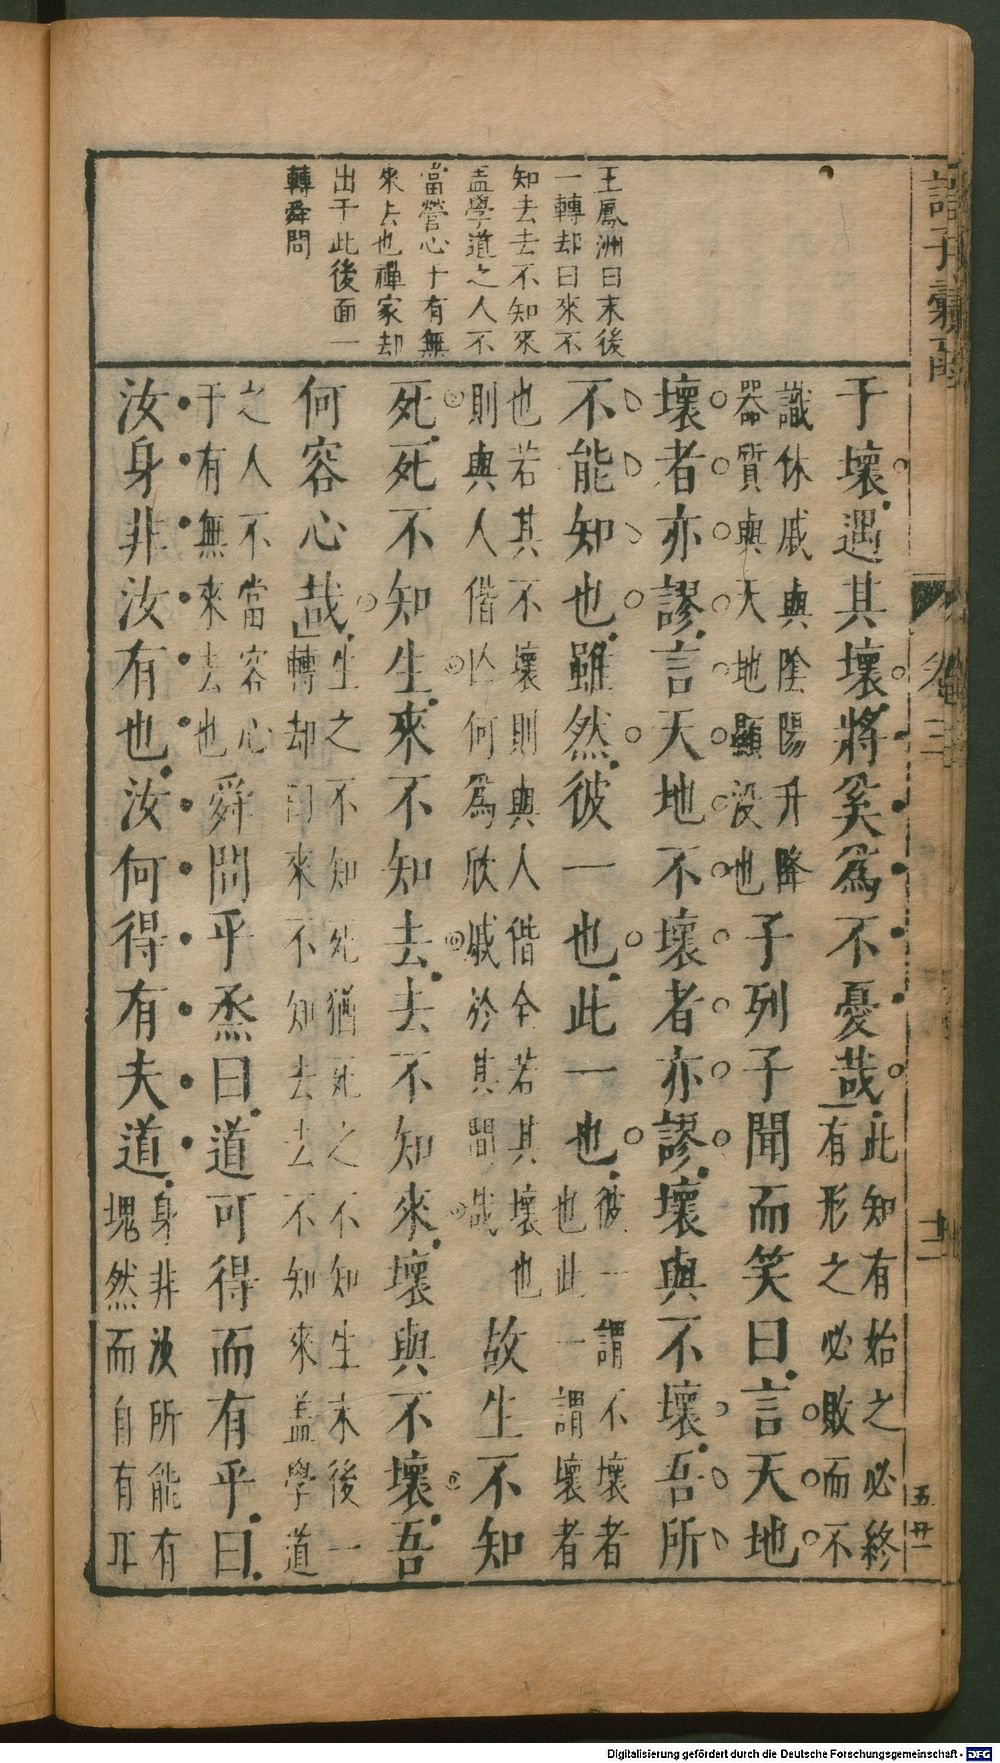 王鳳洲曰末後
一轉却曰來不
知去去不知來
盖學道之人不
當營心于有無
來去也禪家却
出于此後面一
轉舜問
于壞遇其壞將奚爲不憂哉此知有始之必終
有形之必敗而不
識休戚與陰陽升降
器質與天地顯没也子列子聞而笑曰言天地
壞者亦謬言天地不壞者亦謬壞與不壞吾所
不能知也雖然彼一也此一也彼一謂不壞者
也此一謂壞者
也若其不壞則與人偕全若其壞也
則與人偕亾何爲欣戚於其間哉故生不知
死死不知生來不知去去不知來壞與不壞吾
何容心哉生之不知死猶死之不知生末後一
轉却曰來不知去去不知來盖學道
之人不當容心
于有無來去也舜問乎烝曰道可得而有乎曰
汝身非汝有也汝何得有夫道身非汝所能有
塊然而自有耳
諸子彙函
卷三
十二
五廿一
Digitalisierung gefördert durch die Deutsche Forschungsgemeinschaft - DFG